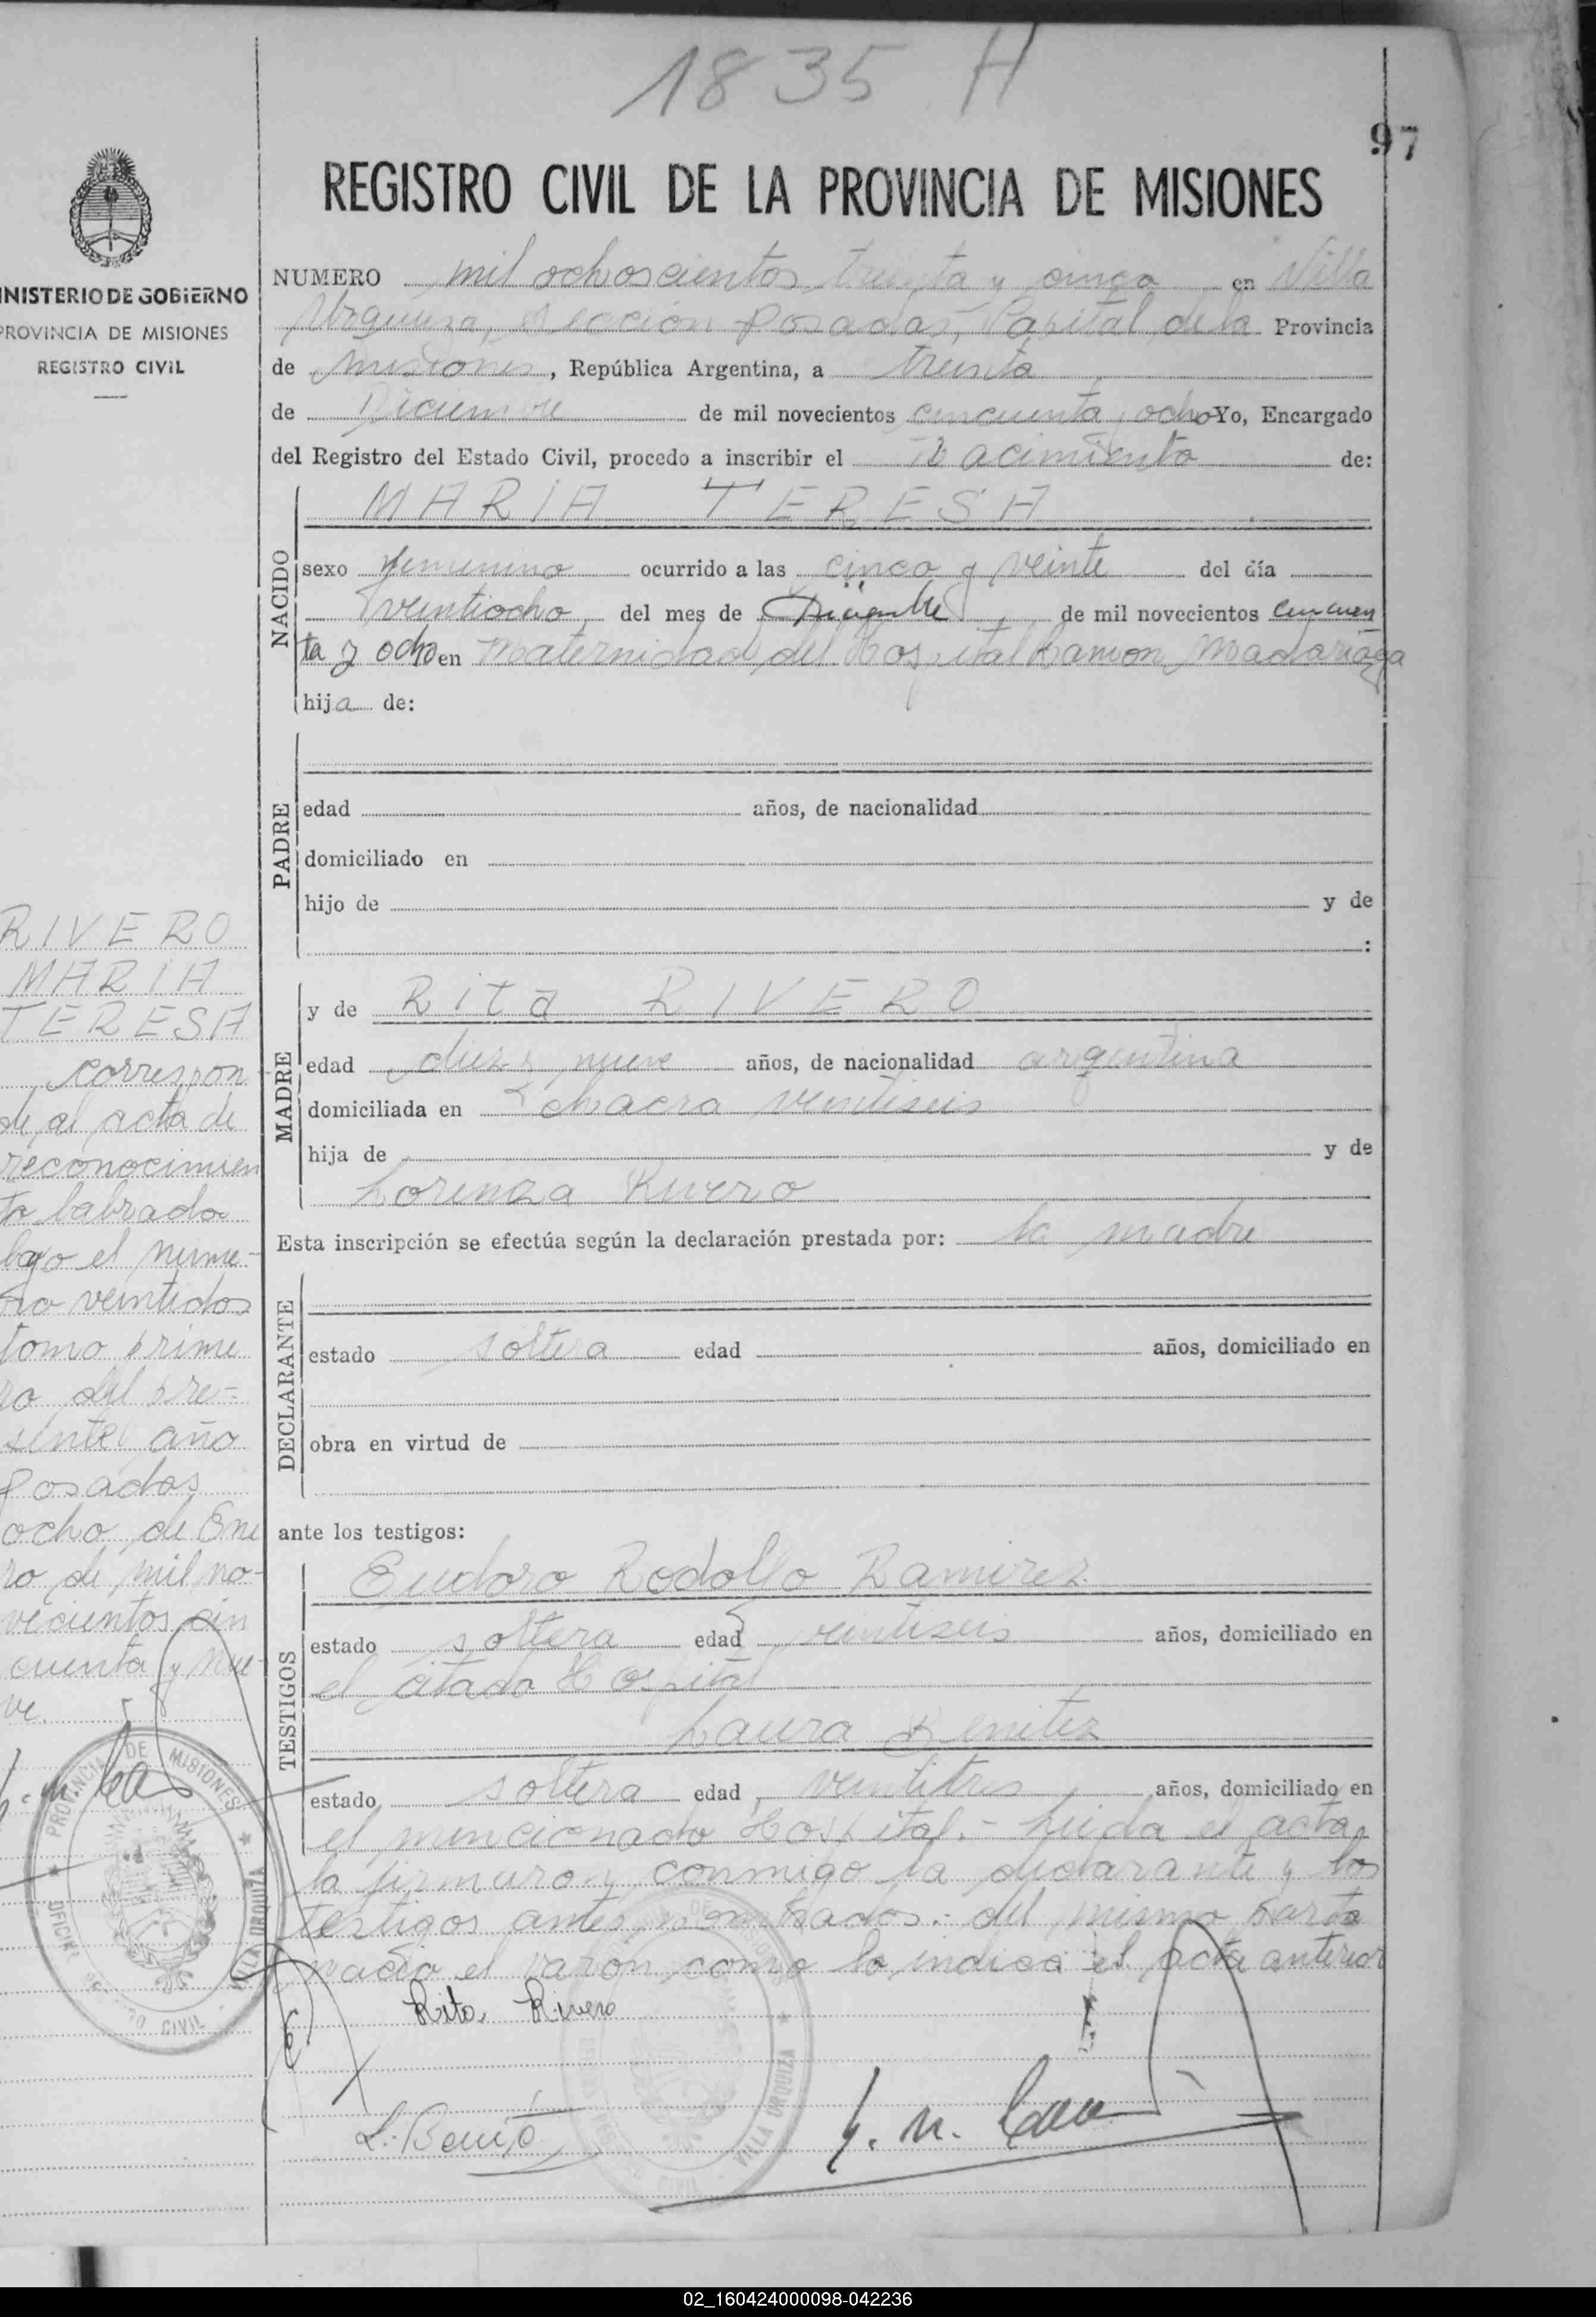 1835 H
97
REGISTRO CIVIL DE LA PROVINCIA DE MISIONES
INISTERIO DE GOBIERNO
PROVINCIA DE MISIONES
REGISTRO CIVIL
NUMERO mil ochoscientos treinta y cinco en Villa
Urquiza, Sección Posadas, Capital de la Provincia
de Misiones, República Argentina, a treinta
de Diciembre de mil novecientos cincuenta y ocho Yo, Encargado
del Registro del Estado Civil, procedo a inscribir el Nacimiento de:
NACIDO
MARIA TERESA
sexo femenino ocurrido a las cinco y veinte del día
veintiocho del mes de Diciembre de mil novecientos cincuen
ta y ocho en Maternidad del Hospital Ramon Madariaga
hija de:
PADRE
edad años, de nacionalidad
domiciliado en
hijo de y de
:
MADRE
y de Rita RIVERO
edad diez y nueve años, de nacionalidad argentina
domiciliada en chacra veintiseis
hija de y de
Lorenza Rivero
Esta inscripción se efectúa según la declaración prestada por: la madre
DECLARANTE
estado soltera edad años, domiciliado en
obra en virtud de
ante los testigos:
TESTIGOS
Eudoro Rodolfo Ramirez
estado soltera edad veintiseis años, domiciliado en
el citado Hospital
Laura Benitez
estado soltera edad veintitres años, domiciliado en
el mencionado Hospital.- Leida el acta
la firmaron conmigo la declarante y los
testigos antes nombrados.- del mismo parto
nacio el varon como lo indica el acta anterior
Rita Rivero
L. Benite
RIVERO
MARIA
TERESA
correspon
de al acta de
reconocimien
to labrada
bajo el nume-
ro veintidos
tomo prime
ro del pre-
sente año
Posadas
ocho de Ene
ro de mil no-
vecientos cin
cuenta y nue-
ve.
PROVINCIA DE MISIONES
VILLA URQUIZA
CIVIL
VILLA URQUIZA
02_160424000098-042236